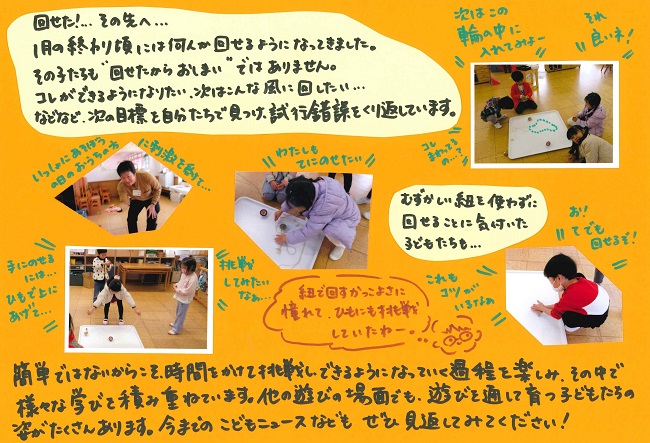 回せた!... その先へ...
1月の終わり頃には何人か回せるようになってきました。
その子たちも"回せたからおしまい"ではありません。
コレができるようになりたい、次はこんな風に回したい...
などなど、次の目標を自分たちで見つけ、試行錯誤をくり返しています。
次はこの
輪の中に
入れてみよー
それ
良いネ!
コレ
まわれてるの...?
いっしょにあそぼう
の日のおうちの方
に刺激を受けて...
わたしも
てにのせたい
むずかしい紐を使わずに
回せることに気付いた
子どもたちも...
お!
てでも
回せるぞ!
手にのせる
には...
ひもで上に
あげて...
挑戦
してみたい
なぁ...
紐で回すかっこよさに
憧れて、ひもにも挑戦
していたわー。
これも
コツが
いるなぁ
簡単ではないからこそ、時間をかけて挑戦し、できるようになっていく過程を楽しみ、その中で
様々な学びを積み重ねています。他の遊びの場面でも、遊びを通して育つ子どもたちの
姿がたくさんあります。今までのこどもニュースなども ぜひ見返してみてください!